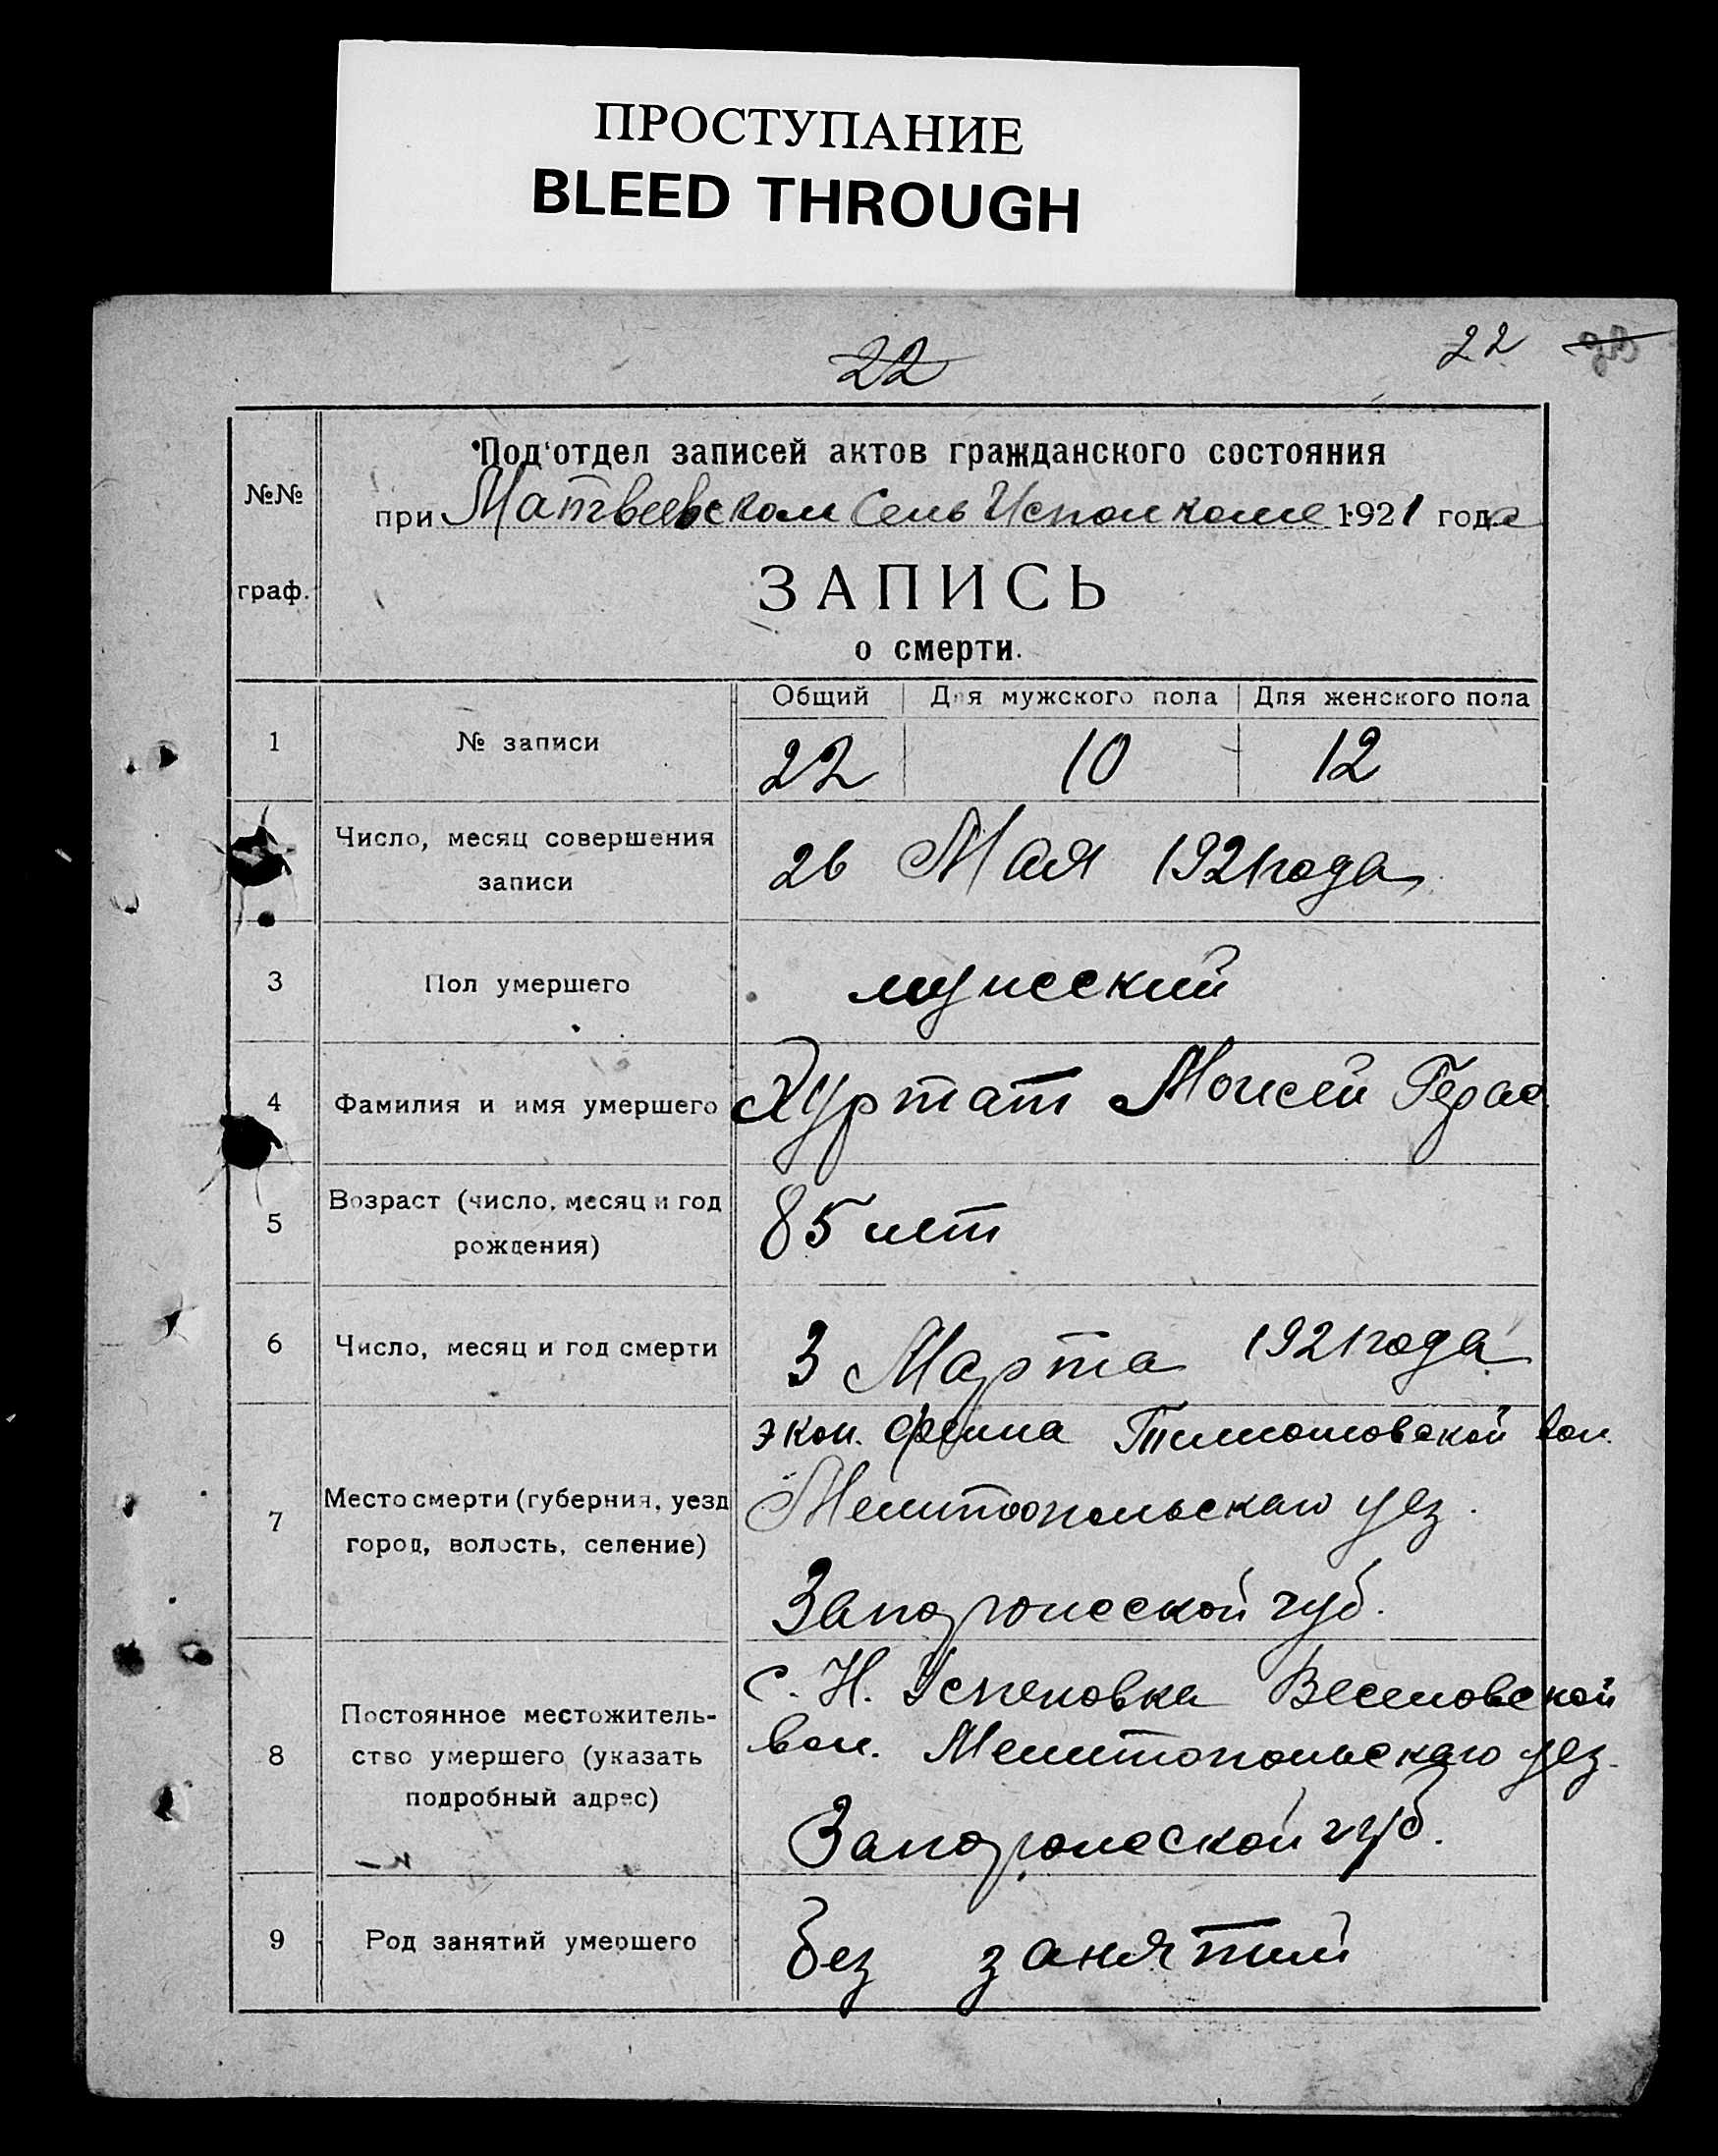 ПРОСТУПАНИЕ
BLEED THROUGH
22
22
Под'отдел записей актов гражданского состояния
№№
при Матвеевском Сель Исполкоме 1921 года
граф.
ЗАПИСЬ
о смерти.
Общий Для мужского пола Для женского пола
1 № записи 22 10 12
Число, месяц совершения
записи
26 Мая 1921 года
3 Пол умершего мужеский
4 Фамилия и имя умершего Моисей Герас
5 Возраст (число, месяц и год
рождения)
85 лет
6 Число, месяц и год смерти 3 Марта 1921 года
7 Место смерти (губерния, уезд
город, волость, селение)
экон. Фейна Тимошовской вол.
Мелитопольскаго уез.
Запорожской губ.
8 Постоянное местожитель-
ство умершего (указать
подробный адрес)
с. Н. Успеновка Веселовской
вол. Мелитопольскаго уез.
Запорожской губ.
9 Род занятий умершего без занятий